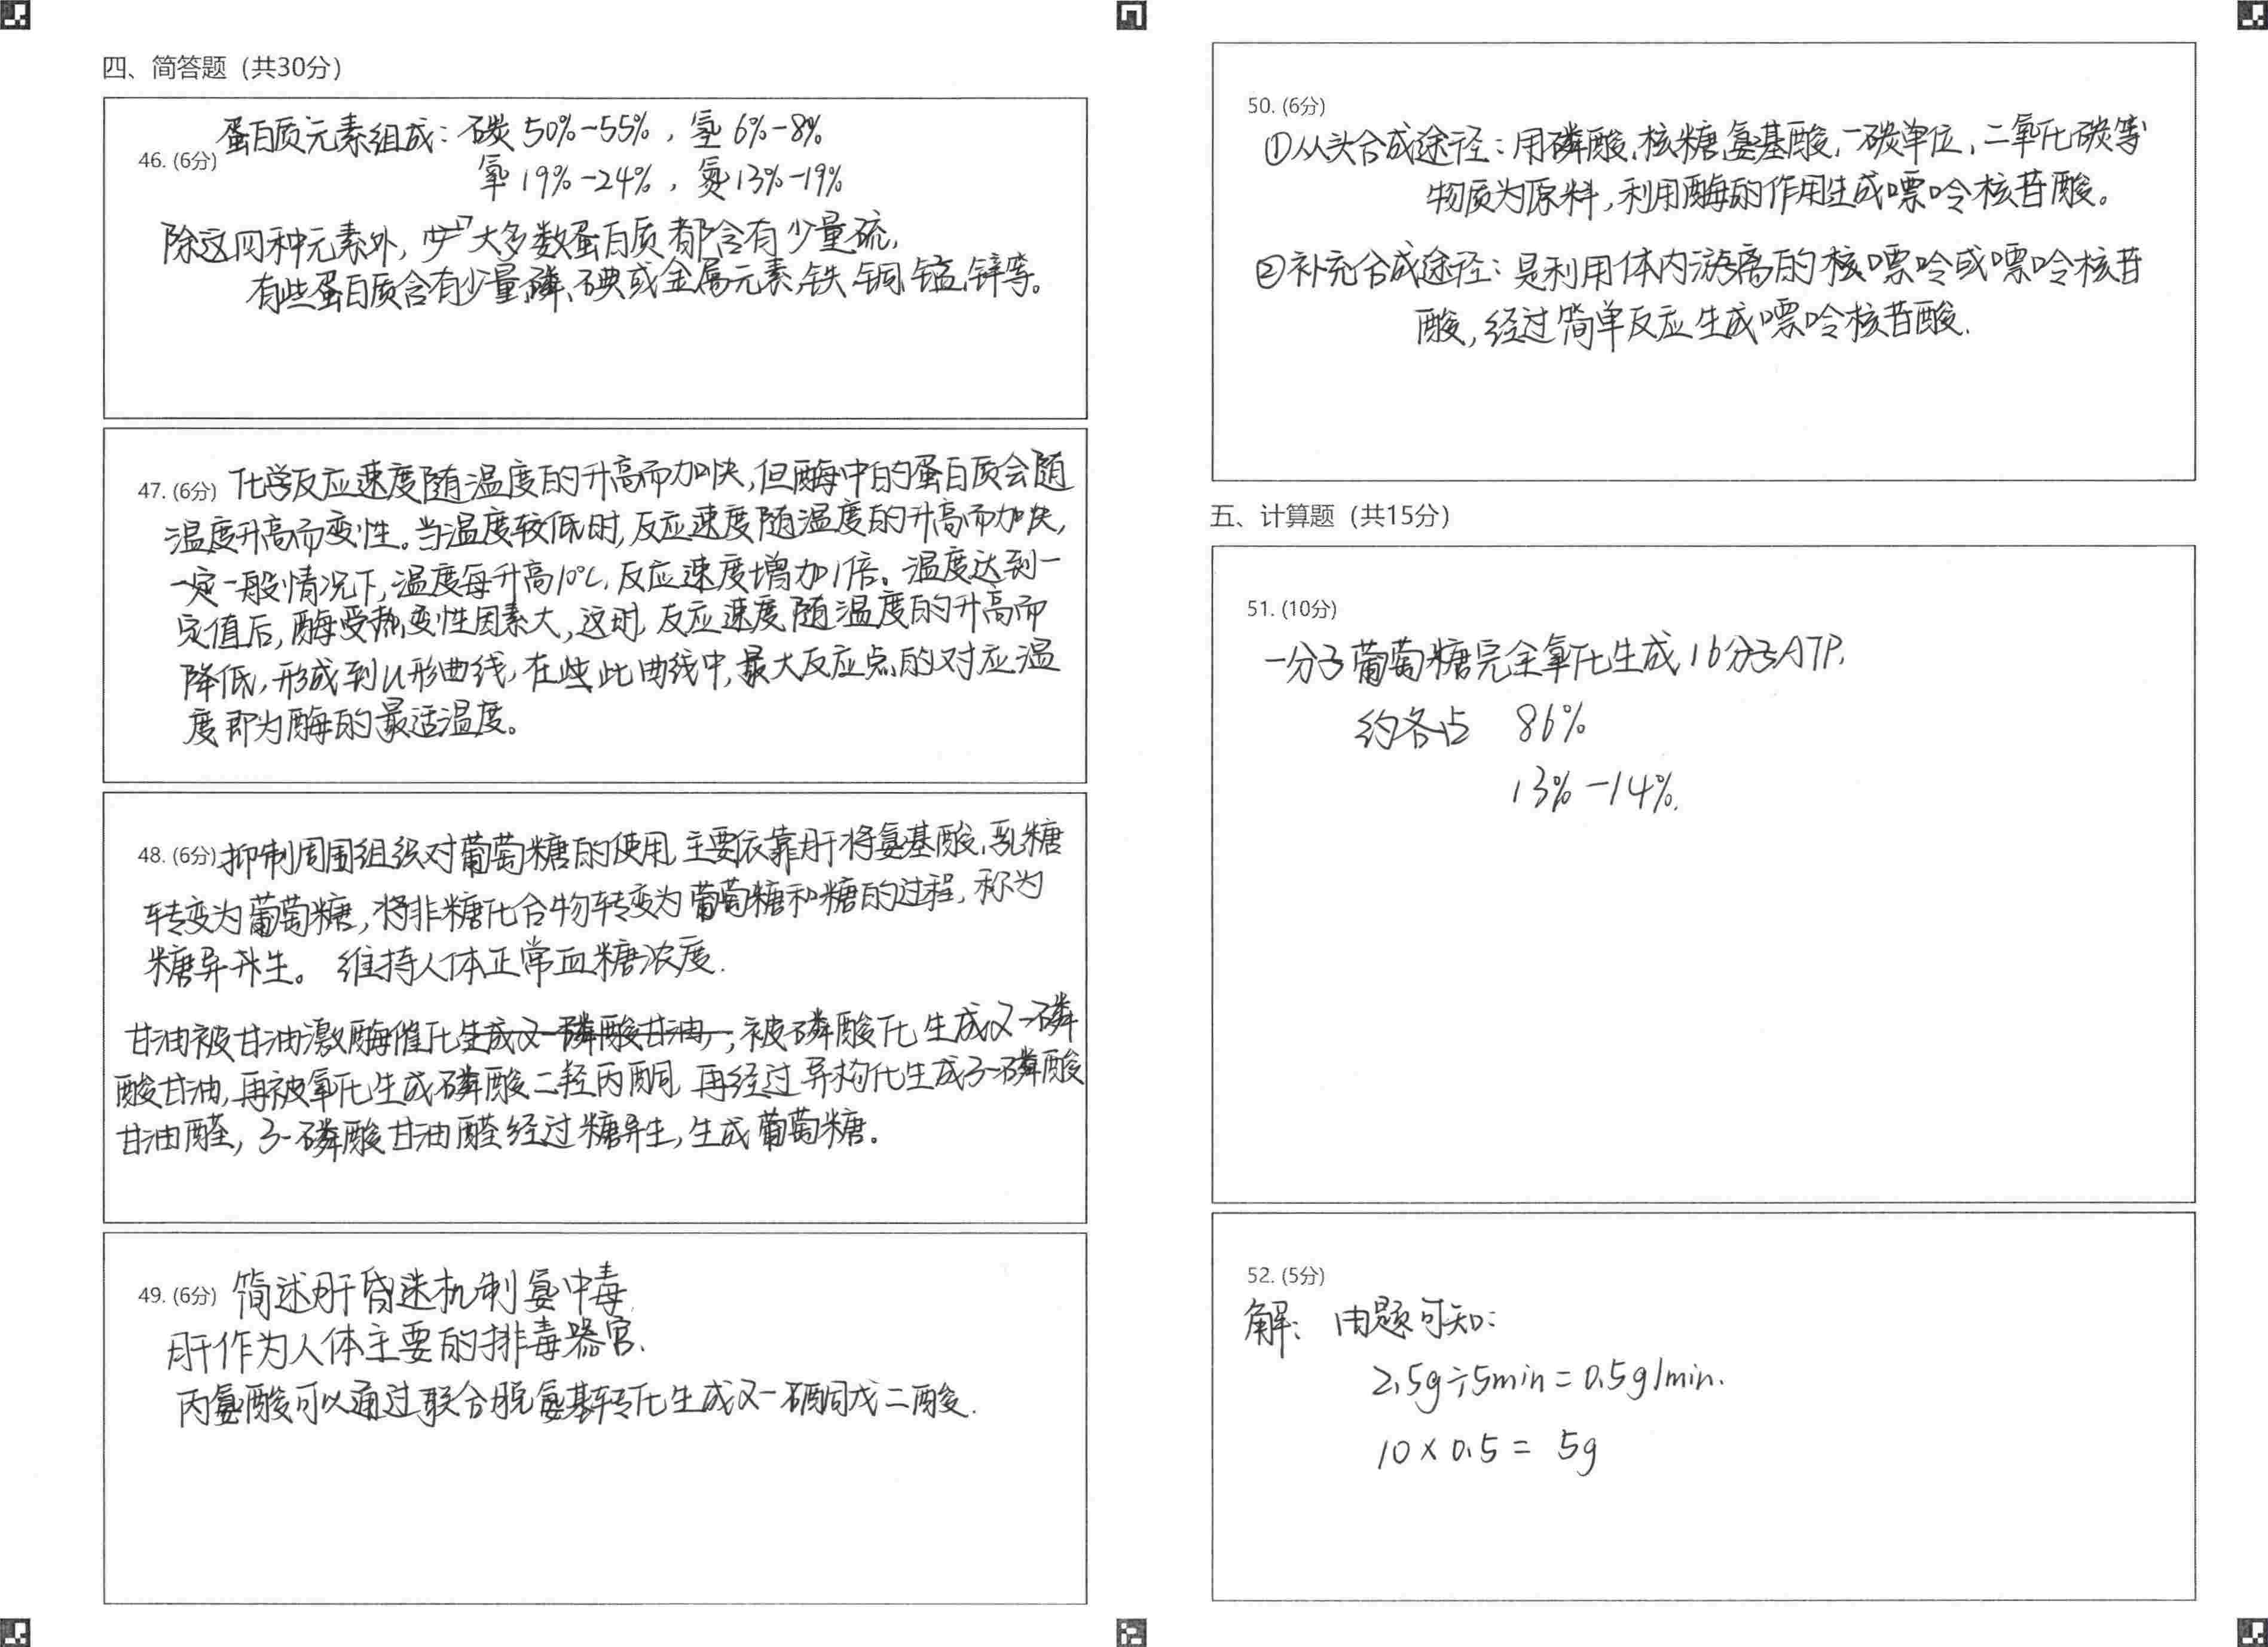 四、简答题（共30分）
蛋白质元素组成：碳50%-55%，氢6%-8%
46. (6分)
氧19%-24%，氮13%-19%
除这四种元素外，大多数蛋白质都含有少量硫，
有些蛋白质含有少量磷、碘或金属元素，铁、铜、锰、锌等。
47. (6分) 化学反应速度随温度的升高而加快，但酶中的蛋白质会随
温度升高而变性。当温度较低时，反应速度随温度的升高而加快，
一定一般情况下，温度每升高10℃，反应速度增加1倍。温度达到一
定值后，酶受热变性因素大，这时，反应速度随温度的升高而
降低，形成到U形曲线，在此曲线中，最大反应点的对应温
度即为酶的最适温度。
48. (6分) 抑制周围组织对葡萄糖的使用，主要依靠肝将氨基酸、乳糖
转变为葡萄糖，将非糖化合物转变为葡萄糖和糖的过程，称为
糖异生。维持人体正常血糖浓度.
甘油被甘油激酶催化生成α-磷酸甘油，被磷酸化生成α-磷
酸甘油，再被氧化生成磷酸二羟丙酮，再经过异构化生成3-磷酸
甘油醛，3-磷酸甘油醛经过糖异生，生成葡萄糖。
49. (6分) 简述肝昏迷机制氨中毒
肝作为人体主要的排毒器官.
丙氨酸可以通过联合脱氨基转化生成α-酮戊二酸.
50. (6分)
①从头合成途径：用磷酸、核糖、氨基酸、一碳单位、二氧化碳等
物质为原料，利用酶的作用生成嘌呤核苷酸。
②补充合成途径：是利用体内游离的核嘌呤或嘌呤核苷
酸，经过简单反应生成嘌呤核苷酸.
五、计算题（共15分）
51. (10分)
一分子葡萄糖完全氧化生成16分子ATP.
约各占 86%
13%-14%.
52. (5分)
解：由题可知：
2.5g÷5min=0.5g/min.
10×0.5= 5g